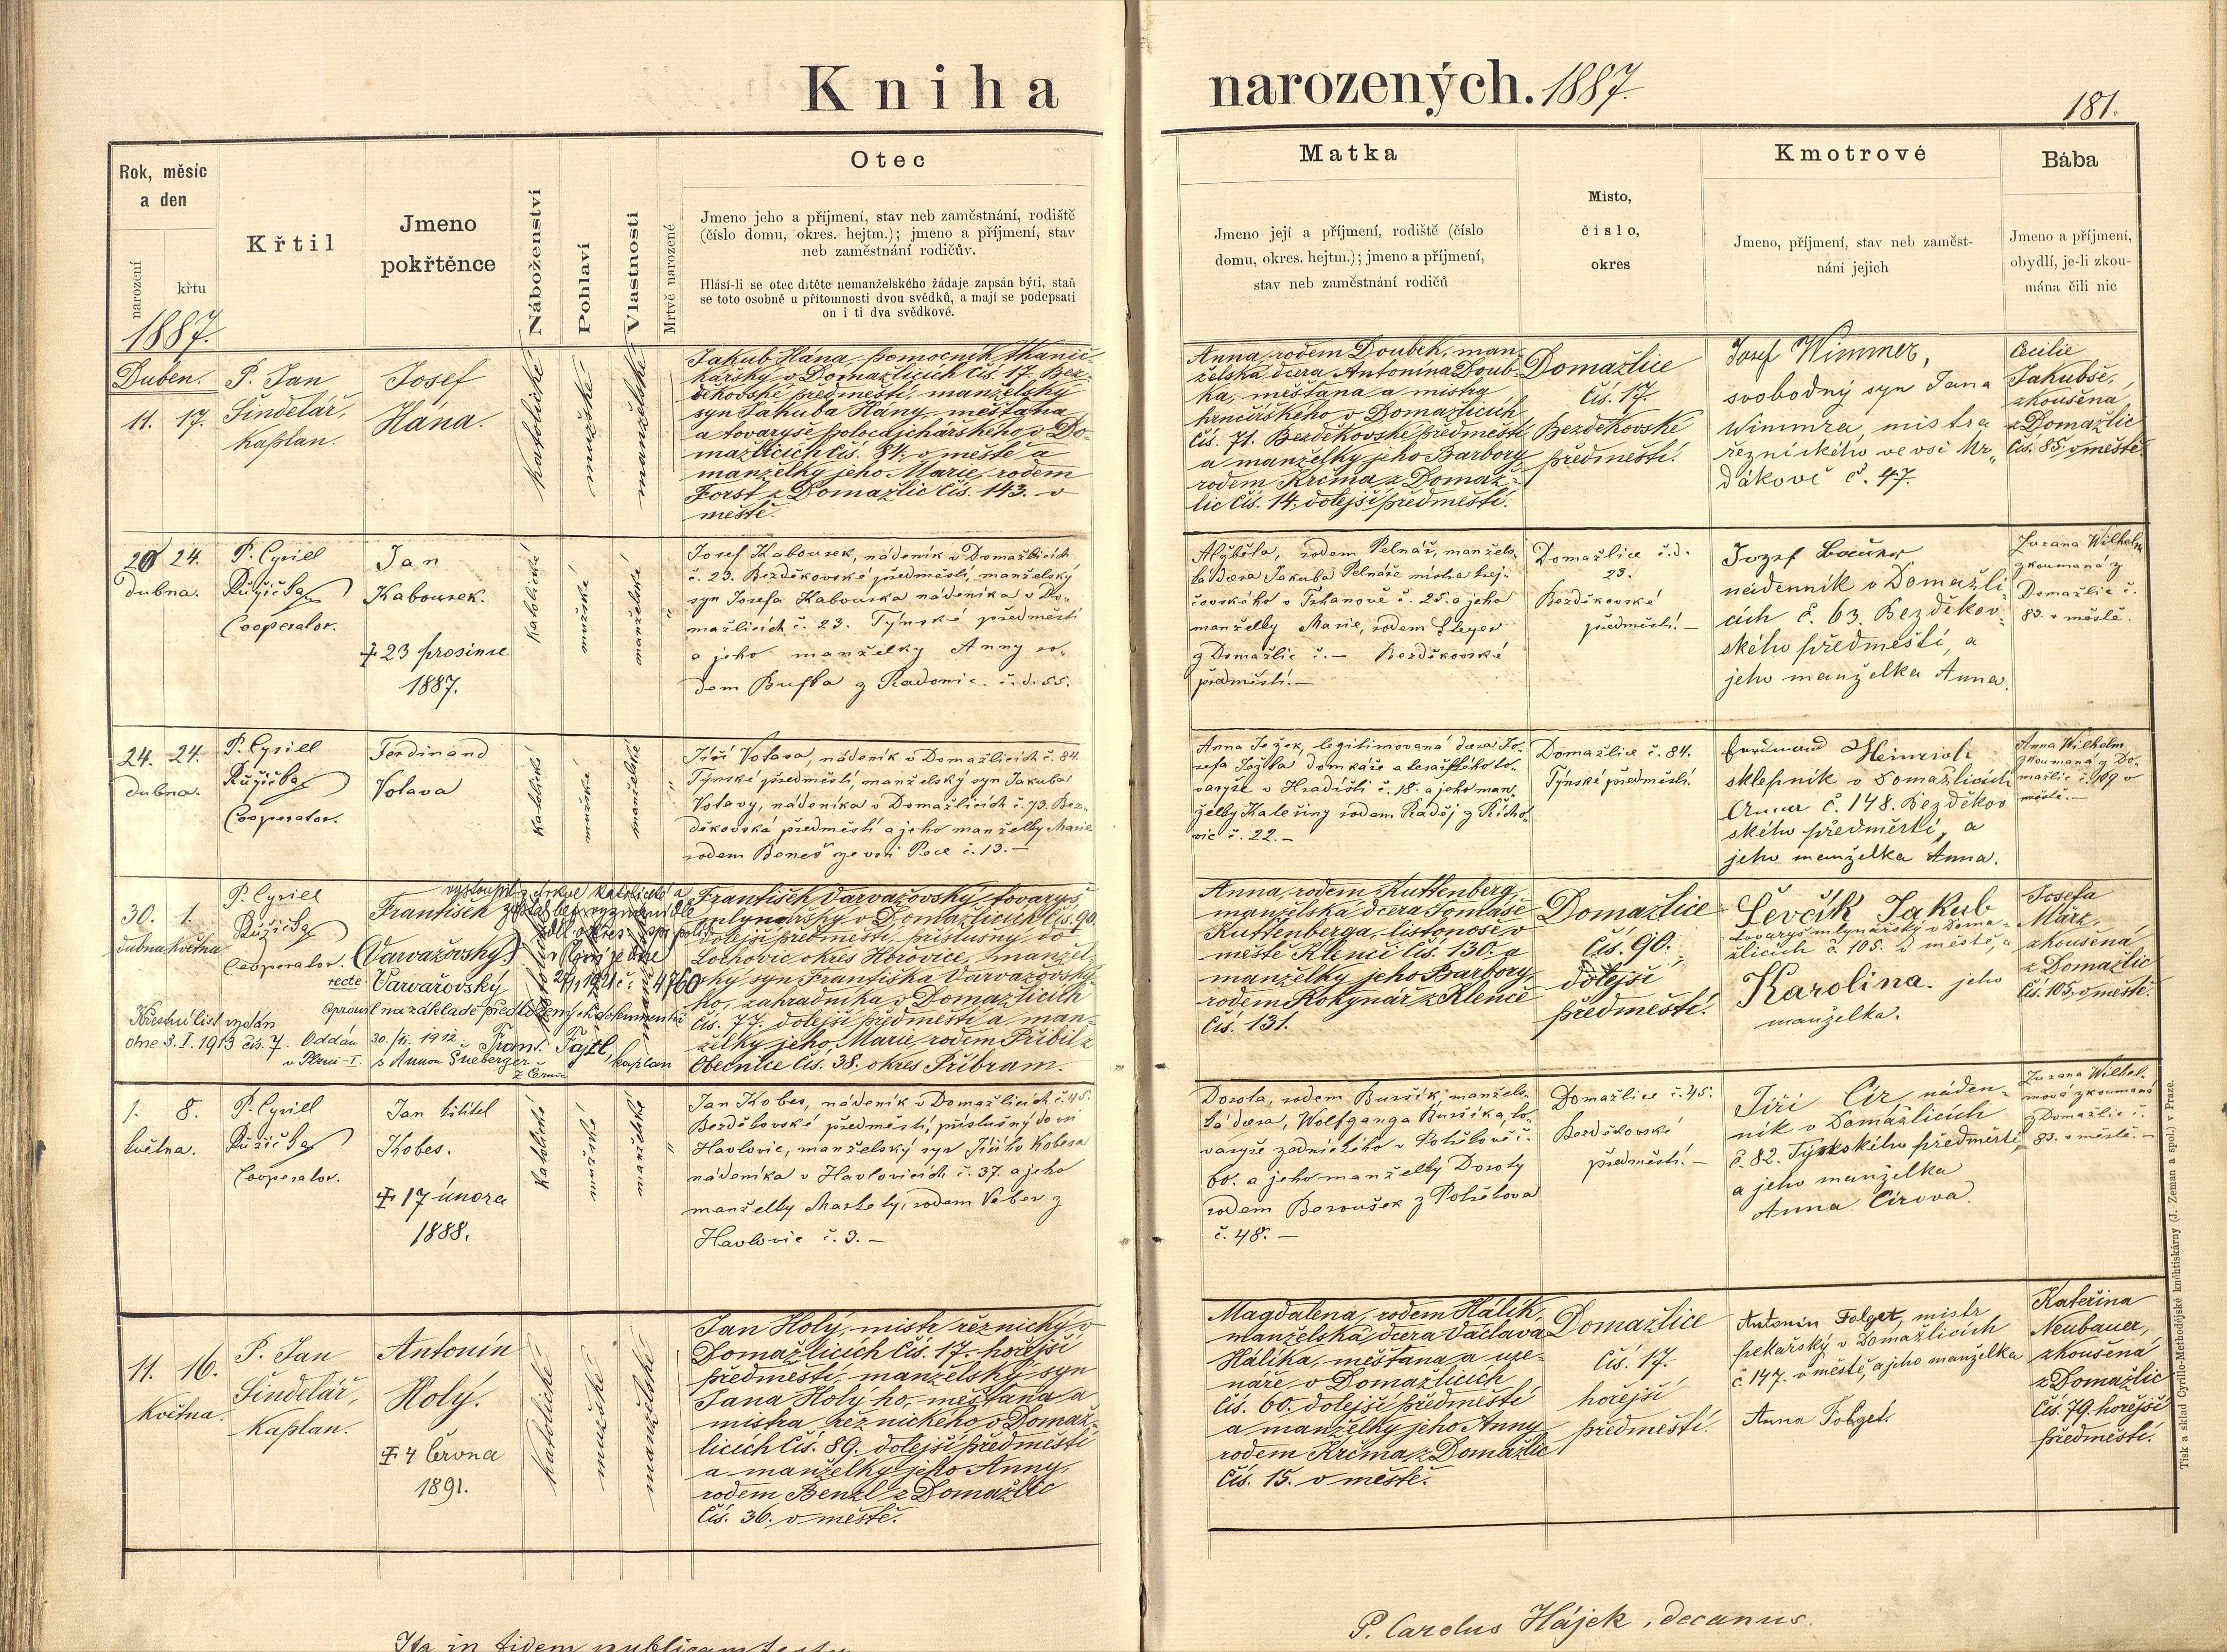 Kniha
narozených. 1887.
181.
Rok, měsíc
a den
narození
křtu
Křtil
Jmeno
pokřtěnce
Náboženství
Pohlaví
Vlastnosti
Mrtvě narozené
Otec
Jmeno jeho a příjmení, stav neb zaměstnání, rodiště
(číslo domu, okres. hejtm.); jmeno a příjmení, stav
neb zaměstnání rodičův.
Hlásí-li se otec dítěte nemanželského žádaje zapsán býti, staň
se toto osobně u přítomnosti dvou svědků, a mají se podepsati
on i ti dva svědkové.
Matka
Jmeno její a příjmení, rodiště (číslo
domu, okres. hejtm.); jmeno a příjmení,
stav neb zaměstnání rodičů
Místo,
číslo,
okres
Kmotrové
Jmeno, příjmení, stav neb zaměst-
nání jejich
Bába
Jmeno a příjmení,
obydlí, je-li zkou-
mána čili nic
1887.
Duben.
11. 17.
P. Jan
Šindelář,
kaplan.
Josef
Hána.
katolické
mužské
manželské
Jakub Hána, pomocník tkanič-
kářský v Domažlicích čís. 17. Bez-
děkovské předměstí, manželský
syn Jakuba Hány, měšťana
a tovaryše polocajchářského v Do-
mažlicích čís. 84. v městě a
manželky jeho Marie, rodem
Forst z Domažlic čís. 143. v
městě.
Anna, rodem Doubek, man-
želská dcera Antonína Doub-
ka, měšťana a mistra
hrnčířského v Domažlicích
čís. 71. Bezděkovské předměstí
a manželky jeho Barbory
rodem Krčma z Domaž-
lic čís. 14. dolejší předměstí.
Domažlice
čís. 17.
Bezděkovské
předměstí.
Josef Wimmer,
svobodný syn Jana
Wimmra, mistra
řeznického ve vsi Mr-
dákově č. 47.
Cecilie
Jakubše,
zkoušená
z Domažlic
čís. 85 v městě.
20 24.
dubna.
P. Cyrill
Růžička
Cooperator.
Jan
Kabourek.
‡ 23 prosince
1887.
katolické
mužské
manželské
"
Josef Kabourek, nádeník v Domažlicích
č. 23. Bezděkovské předměstí, manželský
syn Josefa Kabourka nádeníka v Do-
mažlicích č. 23. Týnské předměstí
a jeho manželky Anny ro-
dem Buffka z Radonic. č.d. 55.
Alžběta, rodem Pelnář, manžels-
ká dcera Jakuba Pelnáře mistra krej-
čovského v Trhanově č. 25. a jeho
manželky Marie, rodem Steyer
z Domažlic č. — Bezděkovské
předměstí. —
Domažlice č.d.
23.
Bezděkovské
předměstí. —
Jozef
nádenník v Domažli-
cích č. 63. Bezděkov-
ského předměstí, a
jeho manželka Anna.
Zuzana Wilhelm
zkoumaná z
Domažlic č.
83. v městě.
24. 24.
dubna.
P. Cyrill
Růžička
Cooperator.
Ferdinand
Votava
katolické
mužské
manželské
"
Jiří Votava, nádeník v Domažlicích č. 84.
Týnské předměstí, manželský syn Jakuba
Votavy, nádeníka v Domažlicích č. 73. Bez-
děkovské předměstí a jeho manželky Marie
rodem Beneš ze vsi Pece č. 13. —
Anna Ježek, legitimovaná dcera Jo-
sefa Ježka domkáře a tesařského to-
varyše v Hradišti č. 18. a jeho man-
želky Kateřiny rodem Raděj z Řícho-
vic č. 22. —
Domažlice č. 84.
Týnské předměstí.
Ferdinand Heinrich
sklepník v Domažlicích
č. 148. Bezděkov
ského předměstí, a
jeho manželka Anna.
Anna Wilhelm
zkoumaná z Do-
mažlic č.
městě. —
30. 1.
dubna května
P. Cyrill
Růžička
Cooperator.
vystoupil z církve katolické a
František zůstal bez vyznání dle
(Varvažovský)
recte Varvařovský
27/1 1921 č. 4760
opravil na základě předložených dokumentů
Frant. Fajtl, kaplan
Křestní list vydán
dne 3. I. 1913 čís. 7. Oddán 30./11. 1912
v Plzni-I. s Annou
z Černic
František Varvažovský, tovaryš
mlynářský v Domažlicích čís. 90.
dolejší předměstí, příslušný do
Lochovic okres Hořovice, manžel-
ský syn Františka Varvažovské-
ho, zahradníka v Domažlicích
čís. 77. dolejší předměstí a man-
želky jeho Marie, rodem Přibil z
Obecnice čís. 38. okres Příbram.
Anna, rodem Kuttenberg,
manželská dcera Tomáše
Kuttenberga, listonoše v
městě Klenčí čís. 130. a
manželky jeho Barbory,
rodem Kokynář z Klenče
čís. 131.
Domažlice
čís. 90.
dolejší
předměstí.
Ševčík Jakub
tovaryš mlynářský v Doma-
žlicích č. 105. v městě, a
Karolina jeho
manželka.
Josefa
März,
zkoušená
z Domažlic
čís. 105, v městě.
1. 8.
května.
P. Cyrill
Růžička
Cooperator.
Jan křtitel
Kobes.
‡ 17 února
1888.
katolické
mužské
manželské
"
Jan Kobes, nádeník v Domažlicích č. 45.
Bezděkovské předměstí, příslušný do vsi
Havlovic, manželský syn Jiřího Kobesa
nádeníka v Havlovicích č. 37. a jeho
manželky Markety, rodem Veber z
Havlovic č. 3. —
Dorota, rodem Buršík, manžels-
ká dcera, Wolfganga Buršíka, to-
varyše zednického v Postřekově č.
60. a jeho manželky Doroty
rodem Beroušek z Postřekova
č. 48. —
Domažlice č. 45.
Bezděkovské
předměstí. —
Jiří Cír, náden-
ník v Domažlicích
č. 82. Týnského předměstí,
a jeho manželka
Anna Círova.
Zuzana Wilhel-
mová zkoumaná
z Domažlic č.
83. v městě. —
11. 16.
Května.
P. Jan
Šindelář,
kaplan.
Antonín
Holý.
‡ 4 června
1891.
katolické
mužské
manželské
Jan Holý, mistr řeznický v
Domažlicích čís. 17. hořejší
předměstí, manželský syn
Jana Holýho, měšťana a
mistra řeznického v Domaž-
licích čís. 89. dolejší předměstí
a manželky jeho Anny,
rodem Benzl z Domažlic
čís. 36. v městě.
Magdalena, rodem Hálík,
manželská dcera Václava
Hálíka, měšťana a uze-
náře v Domažlicích
čís. 60. dolejší předměstí
a manželky jeho Anny
rodem Krčma z Domažlic
čís. 15. v městě.
Domažlice
čís. 17.
hořejší
předměstí.
Antonín Folget, mistr
pekařský v Domažlicích
č. 147. v městě, a jeho manželka
Anna Folget.
Kateřina
Neubauer,
zkoušená
z Domažlic
čís. 79. hořejší
předměstí.
Tisk a sklad Cyrillo-Methodějské knihtiskárny (J. Zeman a spol.) v Praze.
P. Carolus Hájek, decanus.
Ita in fidem publicam testor